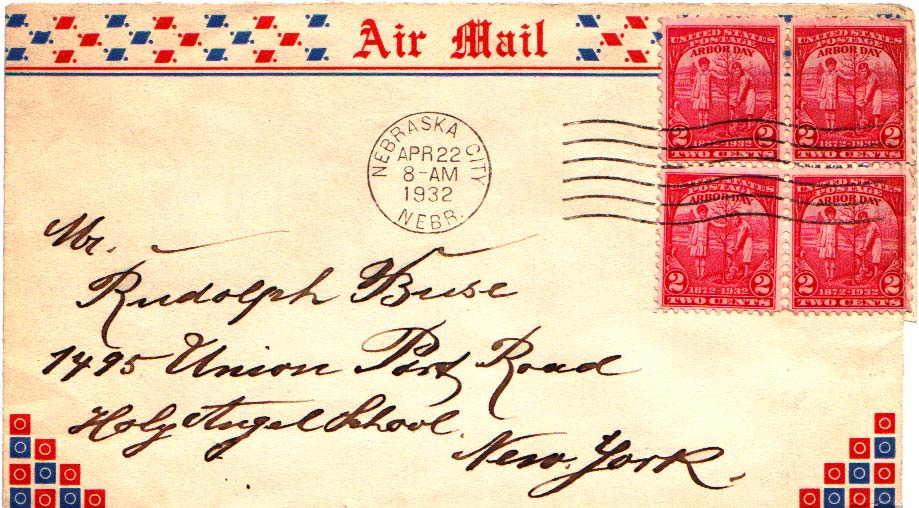 Air Mail
UNITED STATES
POSTAGE
ARBOR DAY
2 2
1872-1932
TWO CENTS
UNITED STATES
POSTAGE
ARBOR DAY
2 2
1872-1932
TWO CENTS
UNITED STATES
POSTAGE
ARBOR DAY
2 2
1872-1932
TWO CENTS
UNITED STATES
POSTAGE
ARBOR DAY
2 2
1872-1932
TWO CENTS
NEBRASKA CITY
APR 22
8-AM
1932
NEBR.
Mr.
Rudolph Buse
1495 Union Port Road
Holy Angel School
New York.